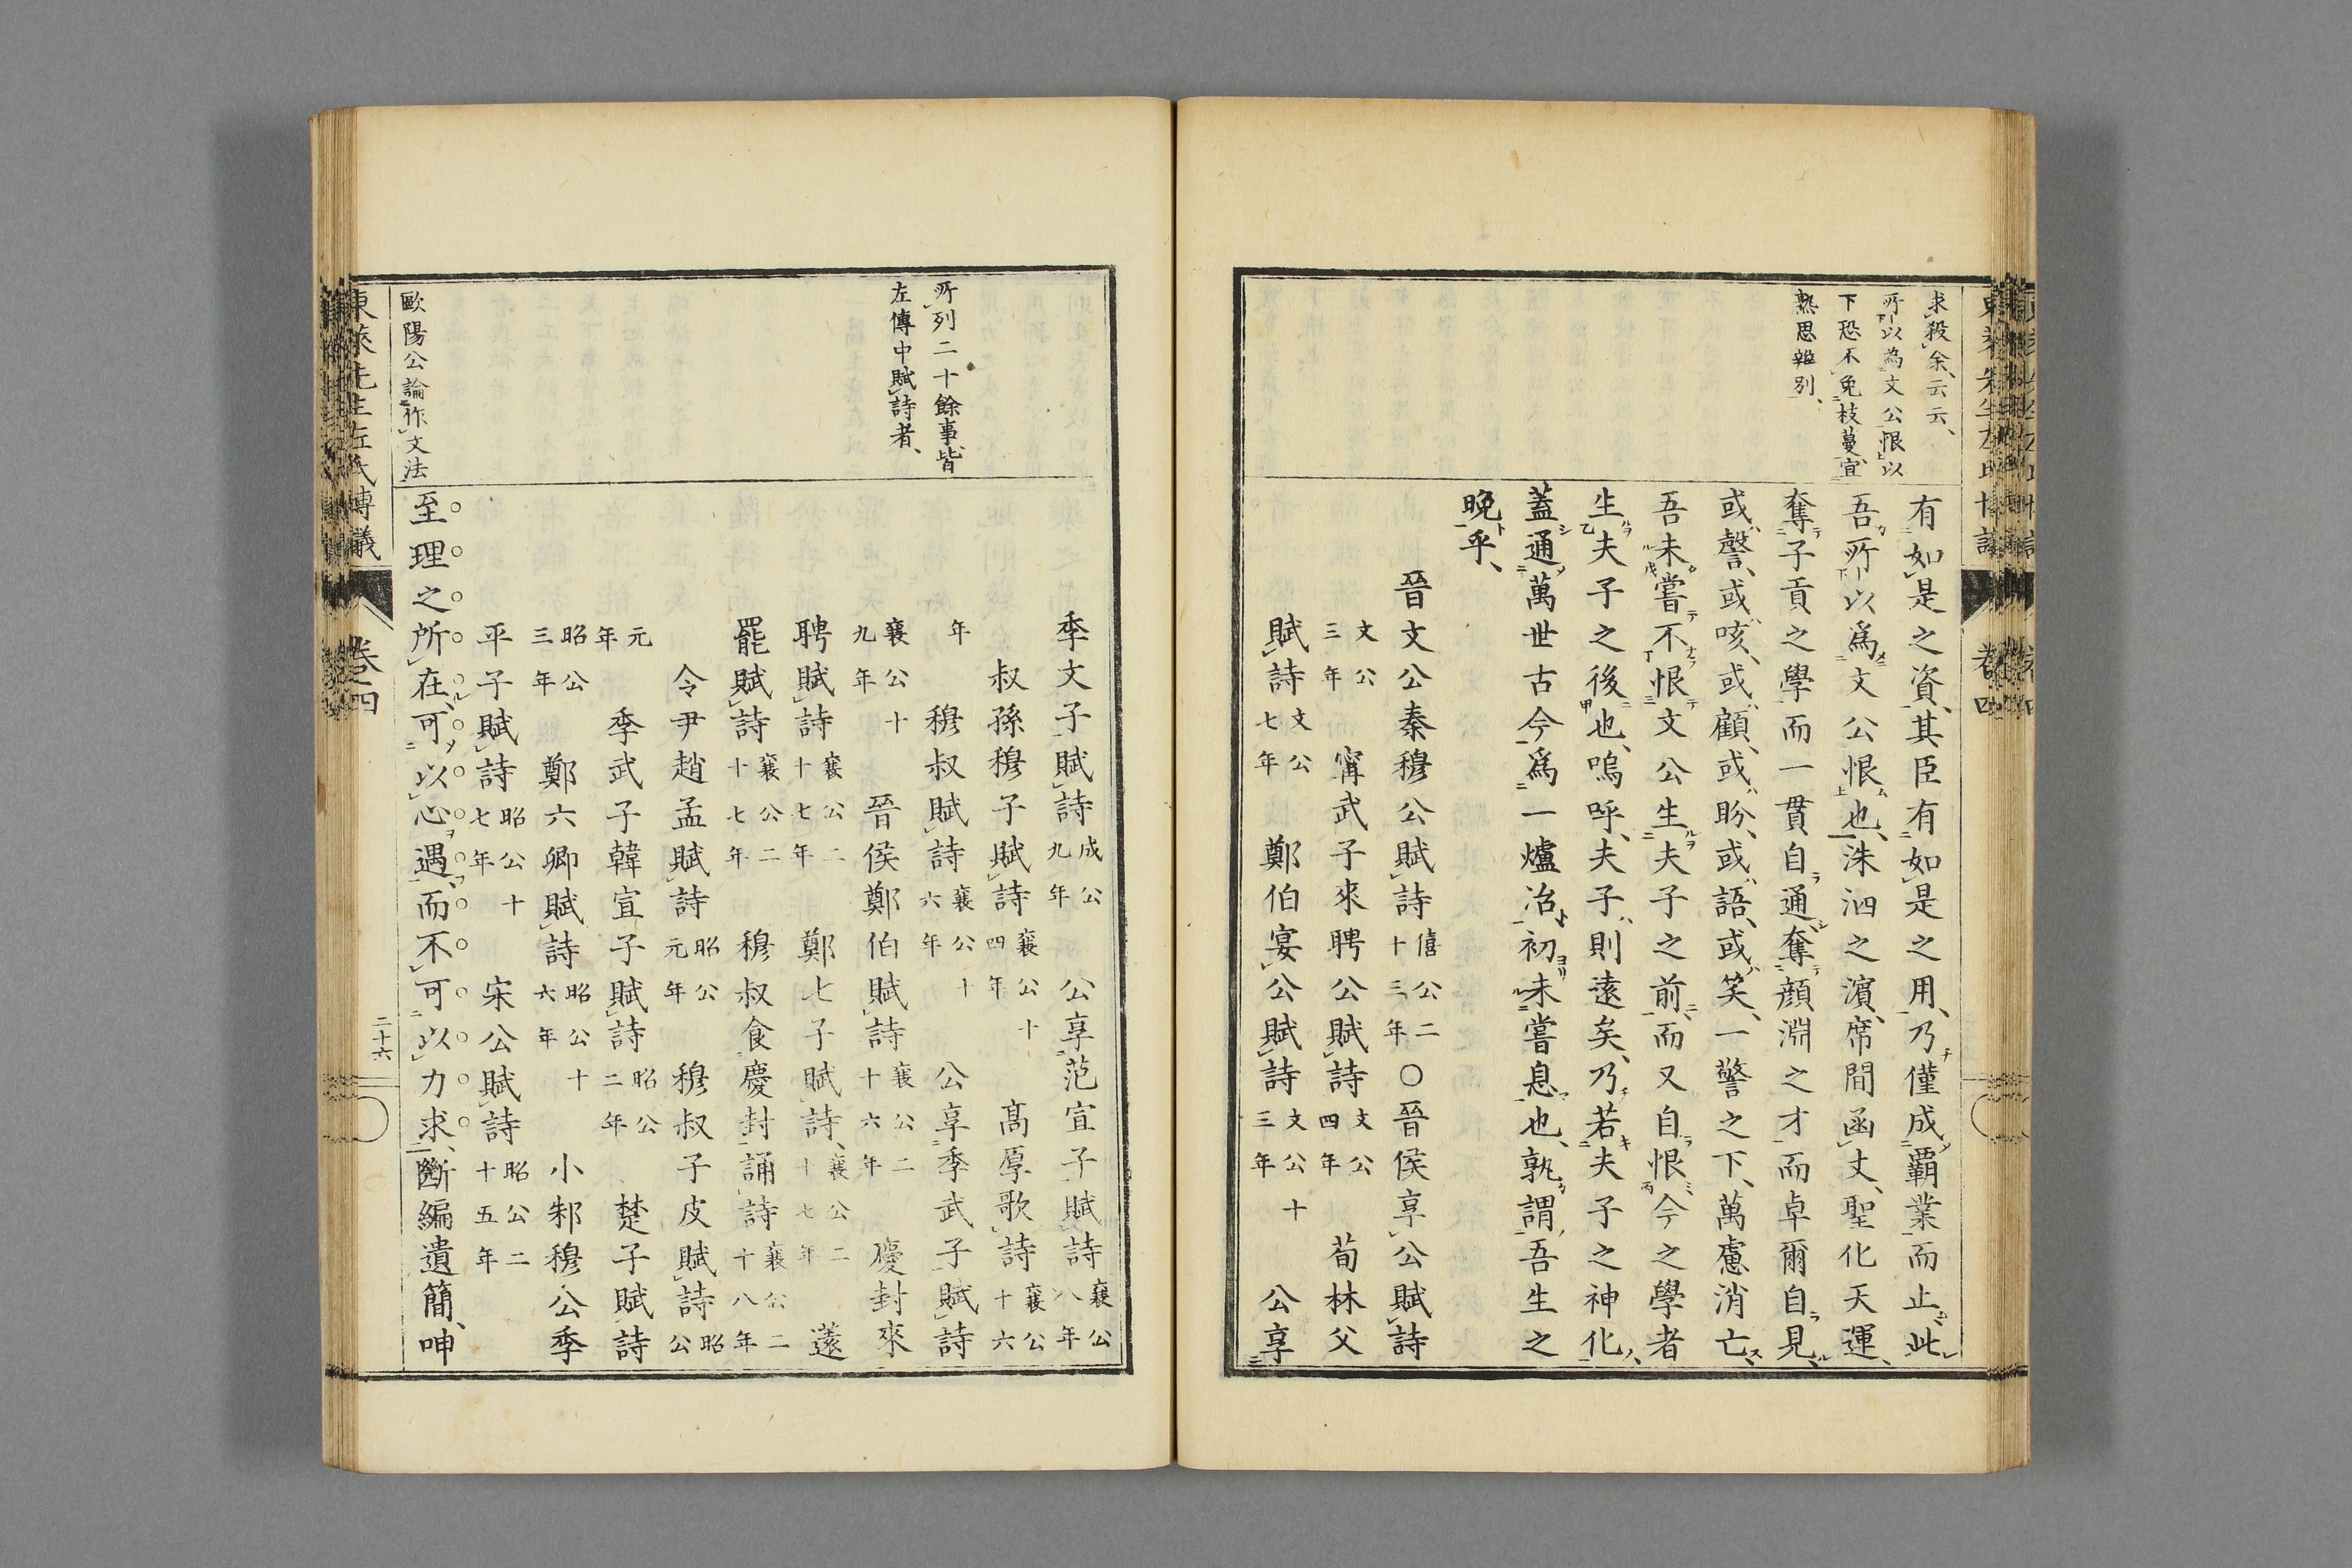 求殺余云云
所以為文公恨以
下恐不免枝蔓宜
熟思辨別
有如是之資其臣有如是之用乃僅成霸業而止此
吾所以為文公恨也洙泗之濱席間函丈聖化天運
奪子貢之學而一貫自通奪顏淵之才而卓爾自見
或謦或咳或顧或盼或語或笑一警之下萬慮消亡
吾未嘗不恨文公生夫子之前而又自恨今之學者
生夫子之後也嗚呼夫子則遠矣乃若夫子之神化
蓋通萬世古今爲一爐冶初未嘗息也孰謂吾生之
晚乎
晉文公秦穆公賦詩僖公二十三年○晉侯享公賦詩
文公三年 甯武子來聘公賦詩文公四年 荀林父
賦詩文公七年 鄭伯宴公賦詩文公十三年 公享
所列二十餘事皆
左傳中賦詩者
季文子賦詩成公九年 公享范宣子賦詩襄公八年
叔孫穆子賦詩襄公十四年 高厚歌詩襄公十六
年 穆叔賦詩襄公十六年 公享季武子賦詩
襄公十九年 晉侯鄭伯賦詩襄公二十六年 慶封來
聘賦詩襄公二十七年 鄭七子賦詩襄公二十七年 薳
罷賦詩襄公二十七年 穆叔食慶封誦詩襄公二十八年
令尹趙孟賦詩昭公元年 穆叔子皮賦詩昭公
元年 季武子韓宣子賦詩昭公二年 楚子賦詩
昭公三年 鄭六卿賦詩昭公十六年 小邾穆公季
平子賦詩昭公十七年 宋公賦詩昭公二十五年
歐陽公論作文法
至理之所在可以心遇而不可以力求斷編遺簡呻
東萊先生左氏博議
卷四
二十六